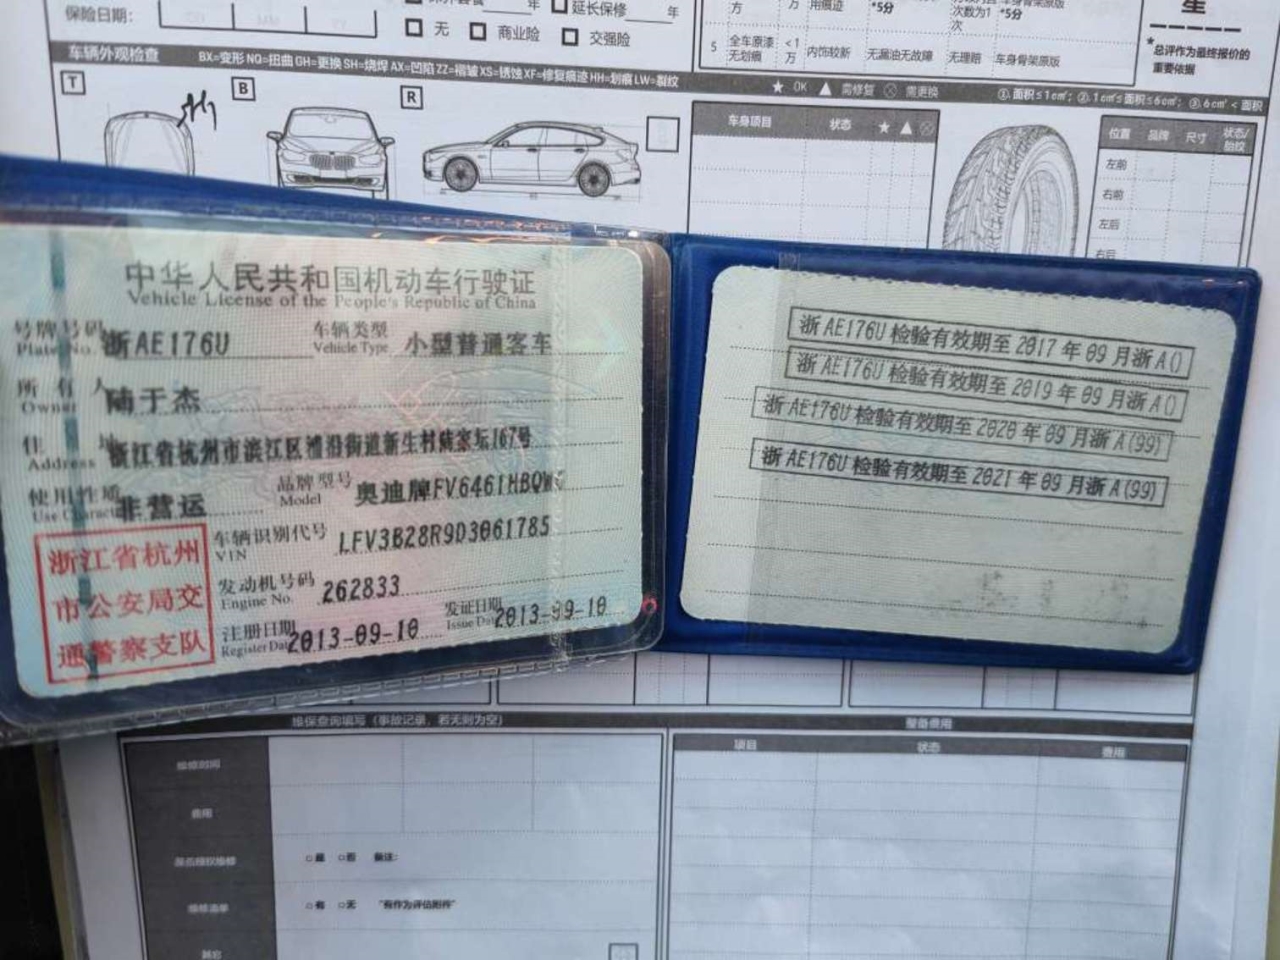 保险日期：
年 延长保修 年
无 商业险 交强险
万 用痕迹 *5分 次数为1次 *5分
5 全车原漆无划痕 <1万 内饰较新 无漏油无故障 无理赔 车身骨架原版
星
*总评作为最终报价的重要依据
车辆外观检查 BX=变形 NQ=扭曲 GH=更换 SH=烧焊 AX=凹陷 ZZ=褶皱 XS=锈蚀 XF=修复痕迹 HH=划痕 LW=裂纹
★ OK ▲ 需修复 ⊗ 需更换
①.面积≤1c㎡；②.1c㎡≤面积≤6c㎡；③.6c㎡<面积
T
B
R
车身项目 状态 ★ ▲ ⊗
位置 品牌 尺寸 状态/胎纹
左前
右前
左后
右后
中华人民共和国机动车行驶证
Vehicle License of the People's Republic of China
号牌号码 浙AE176U 车辆类型 小型普通客车
Plate No. Vehicle Type
所有人 陆于杰
Owner
住址 浙江省杭州市滨江区浦沿街道新生村陆家坛167号
Address
使用性质 非营运 品牌型号 奥迪牌FV6461HBQWG
Use Character Model
浙江省杭州
市公安局交
通警察支队
车辆识别代号 LFV3B28R9D3061785
VIN
发动机号码 262833
Engine No.
注册日期 2013-09-10 发证日期 2013-09-10
Register Date Issue Date
浙AE176U检验有效期至2017年09月浙A()
浙AE176U检验有效期至2019年09月浙A()
浙AE176U检验有效期至2020年09月浙A(99)
浙AE176U检验有效期至2021年09月浙A(99)
维保查询填写（事故记录，若无则为空） 整备费用
维修时间
费用
是否授权维修 ○是 ○否 备注：
维修清单 ○有 ○无 "有作为评估附件"
其它
项目 状态 费用